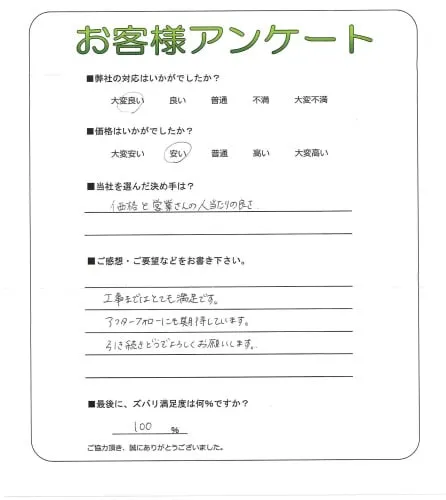 お客様アンケート
■弊社の対応はいかがでしたか?
大変良い 良い 普通 不満 大変不満
■価格はいかがでしたか?
大変安い 安い 普通 高い 大変高い
■当社を選んだ決め手は?
価格と営業さんの人当たりの良さ
■ご感想・ご要望などをお書き下さい。
工事まではとても満足です。
アフターフォローにも期待しています。
引き続きどうぞよろしくお願いします。
■最後に、ズバリ満足度は何%ですか?
100 %
ご協力頂き、誠にありがとうございました。